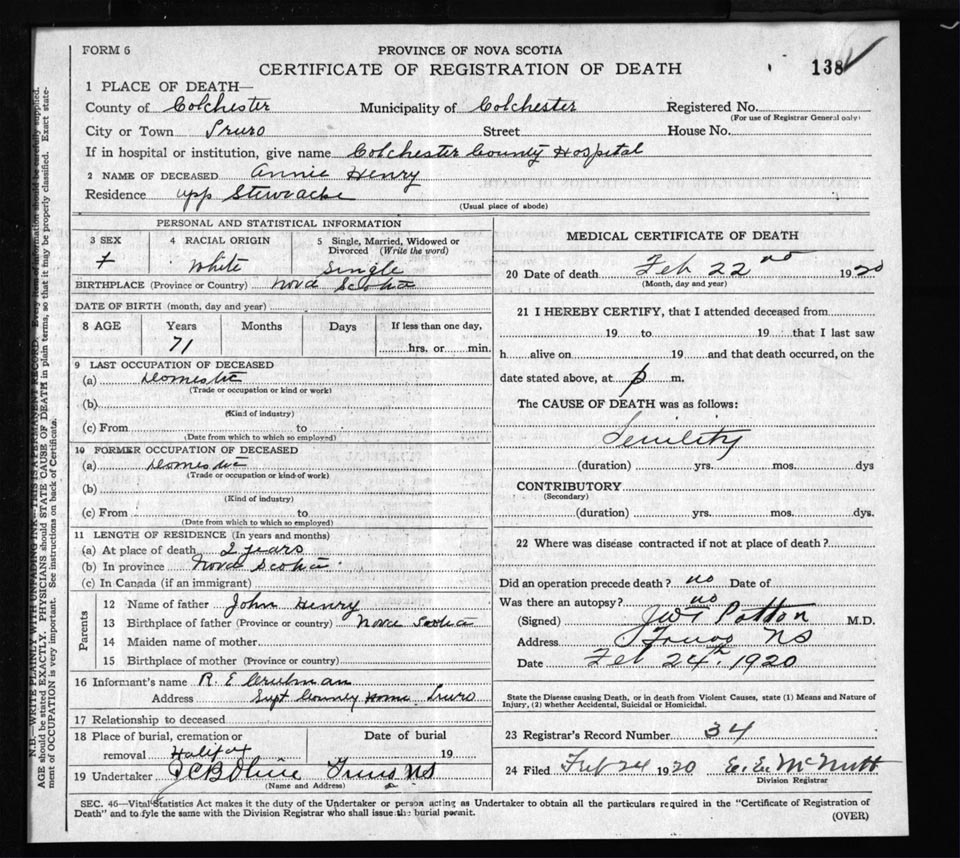 FORM 6
PROVINCE OF NOVA SCOTIA
CERTIFICATE OF REGISTRATION OF DEATH
138
1 PLACE OF DEATH—
County of Colchester Municipality of Colchester Registered No.
(For use of Registrar General only)
City or Town Truro Street House No.
If in hospital or institution, give name Colchester County Hospital
2 NAME OF DECEASED Annie Henry
Residence upp Stewiacke
(Usual place of abode)
PERSONAL AND STATISTICAL INFORMATION
3 SEX 4 RACIAL ORIGIN 5 Single, Married, Widowed or Divorced (Write the word)
f White Single
BIRTHPLACE (Province or Country) Nova Scotia
DATE OF BIRTH (month, day and year)
8 AGE Years Months Days If less than one day,
71 hrs. or min.
9 LAST OCCUPATION OF DECEASED
(a) Domestic
(Trade or occupation or kind or work)
(b)
(Kind of industry)
(c) From to
(Date from which to which so employed)
10 FORMER OCCUPATION OF DECEASED
(a) Domestic
(Trade or occupation or kind of work)
(b)
(Kind of industry)
(c) From to
(Date from which to which so employed)
11 LENGTH OF RESIDENCE (In years and months)
(a) At place of death 2 years
(b) In province Nova Scotia
(c) In Canada (if an immigrant)
Parents
12 Name of father John Henry
13 Birthplace of father (Province or country) Nova Scotia
14 Maiden name of mother
15 Birthplace of mother (Province or country)
16 Informant's name R. E
Address Supt County Home Truro
17 Relationship to deceased
18 Place of burial, cremation or Date of burial
removal Halifax 19
19 Undertaker Truro NS
(Name and Address)
MEDICAL CERTIFICATE OF DEATH
20 Date of death Feb 22nd 1920
(Month, day and year)
21 I HEREBY CERTIFY, that I attended deceased from
19 to 19 that I last saw
h alive on 19 and that death occurred, on the
date stated above, at p m.
The CAUSE OF DEATH was as follows:
Senility
(duration) yrs. mos. dys
CONTRIBUTORY
(Secondary)
(duration) yrs. mos. dys.
22 Where was disease contracted if not at place of death?
Did an operation precede death? no Date of
Was there an autopsy? no
(Signed) Patton M.D.
Address Truro NS
Date Feb 24th 1920
State the Disease causing Death, or in death from Violent Causes, state (1) Means and Nature of
Injury, (2) whether Accidental, Suicidal or Homicidal.
23 Registrar's Record Number 34
24 Filed Feb 24 1920 E. E. McNutt
Division Registrar
SEC. 46—Vital Statistics Act makes it the duty of the Undertaker or person acting as Undertaker to obtain all the particulars required in the "Certificate of Registration of
Death" and to fyle the same with the Division Registrar who shall issue the burial permit.
(OVER)
N.B.—WRITE PLAINLY WITH UNFADING INK—THIS IS A PERMANENT RECORD. Every item of information should be carefully supplied.
AGE should be stated EXACTLY. PHYSICIANS should STATE CAUSE OF DEATH in plain terms, so that it may be properly classified. Exact state-
ment of OCCUPATION is very important. See instructions on back of Certificate.